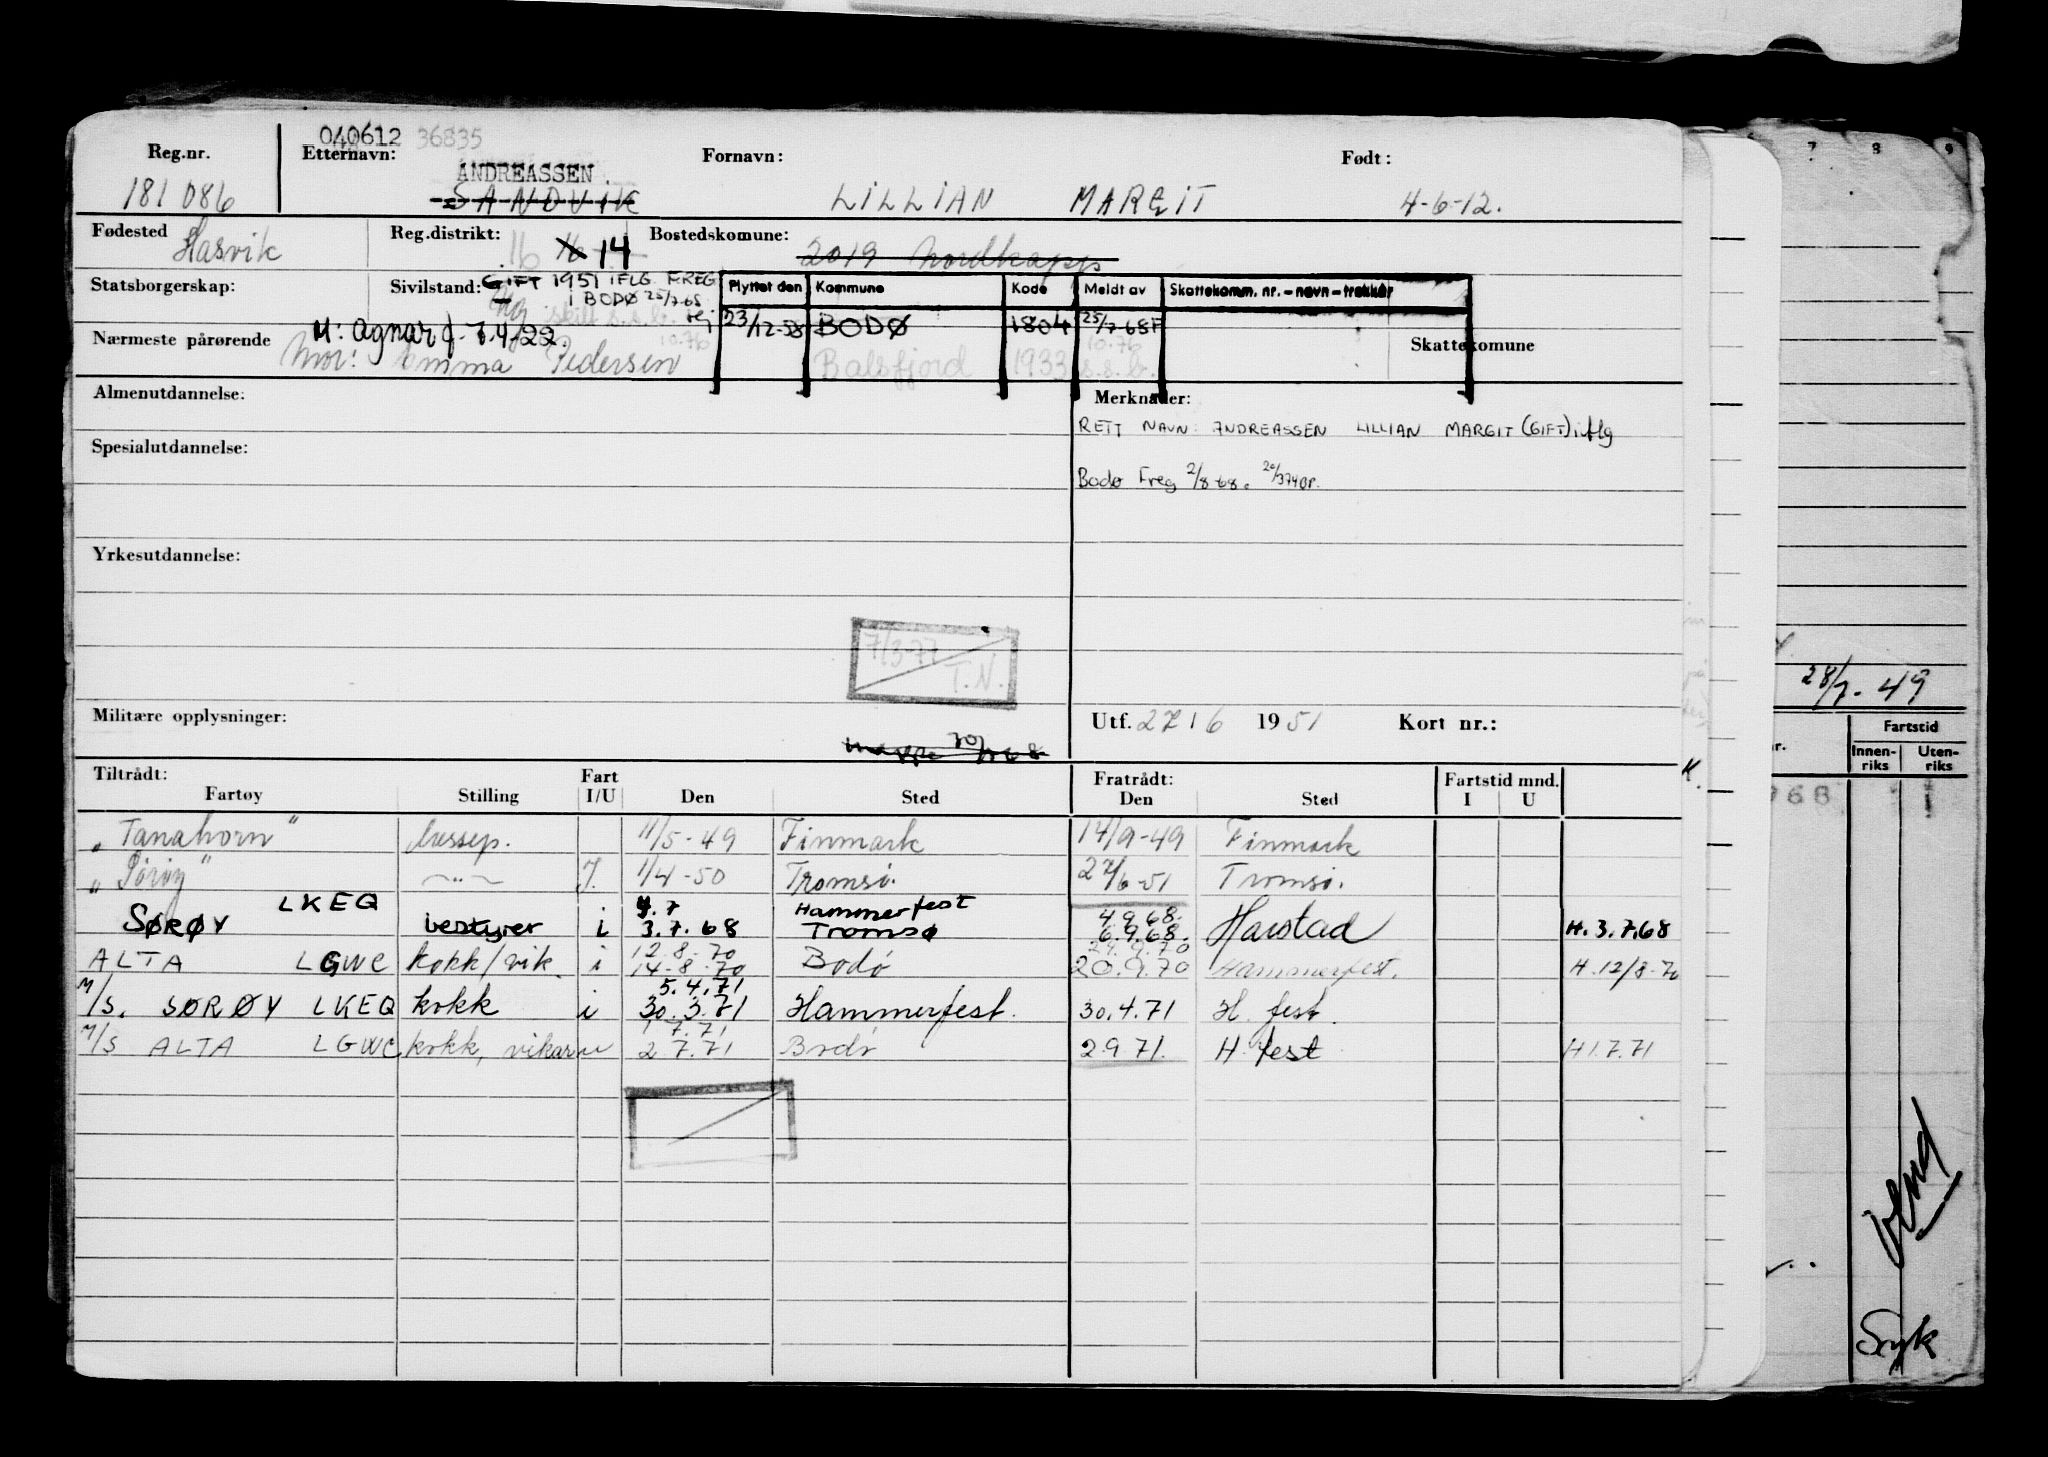 040612 36835
Reg.nr. Etternavn: Fornavn: Født:
ANDREASSEN
181 086 SANDVIK LILLIAN MARGIT 4-6-12.
Fødested Hasvik Reg.distrikt: 16 16 14 Bostedskomune: 2019 Nordkapp
Statsborgerskap: Sivilstand: GIFT 1951 IFLG. FREG
I BODØ 25/7-68
Ug skilt s.s.b.
Plyttet den Kommune Kode Meldt av Skattekomm. nr. - navn - trekkår
23/12-58 BODØ 1804 25/7-68F
Nærmeste pårørende M: Agnar f. 7.4-22. 10.76 10.76 Skattekomune
Mor: Emma Pedersen Balsfjord 1933 s.s.b.
Almenutdannelse: Merknader:
RETT NAVN: ANDREASSEN LILLIAN MARGIT (GIFT) iflg
Spesialutdannelse:
Bodø Freg 2/8-68.
Yrkesutdannelse:
7/3-77
T.N.
Militære opplysninger: Utf. 27/6 1951 Kort nr.:
Tiltrådt: Fart Fratrådt: Fartstid mnd.
Fartøy Stilling I/U Den Sted Den Sted I U
"Tanahorn" 11/5-49 Finmark 14/9-49 Finmark
"Sørøy" —"— I. 1/4-50 Tromsø. 27/6-51 Tromsø.
LKEQ 4.7 Hammerfest 4.9.68.
SØRØY bestyrer i 3.7.68 Tromsø 6.9.68. Harstad H. 3.7.68
12.8.70
ALTA LGWC kokk/vik. i 14-8-70 Bodø 20.9.70 Hammerfest. H. 12/8-70
5.4.71
M/S. SØRØY LKEQ kokk i 30.3.71 Hammerfest. 30.4.71 H. fest.
1.7.71
M/S ALTA LGWC kokk, vikar 2.7.71 Bodø 2.9.71. H. fest H 1.7.71
7 8 9
28/7-49
Fartstid
Innen-riks Uten-riks